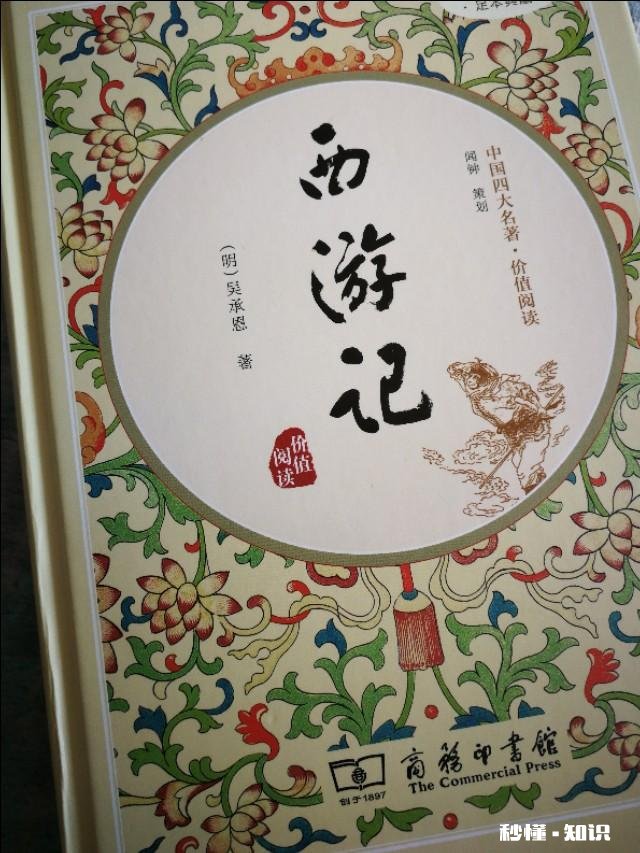 足本典藏
中国四大名著·价值阅读
闻钟 策划
西游记
(明)吴承恩 著
价值
阅读
商務印書館
The Commercial Press
创于1897
秒懂·知识